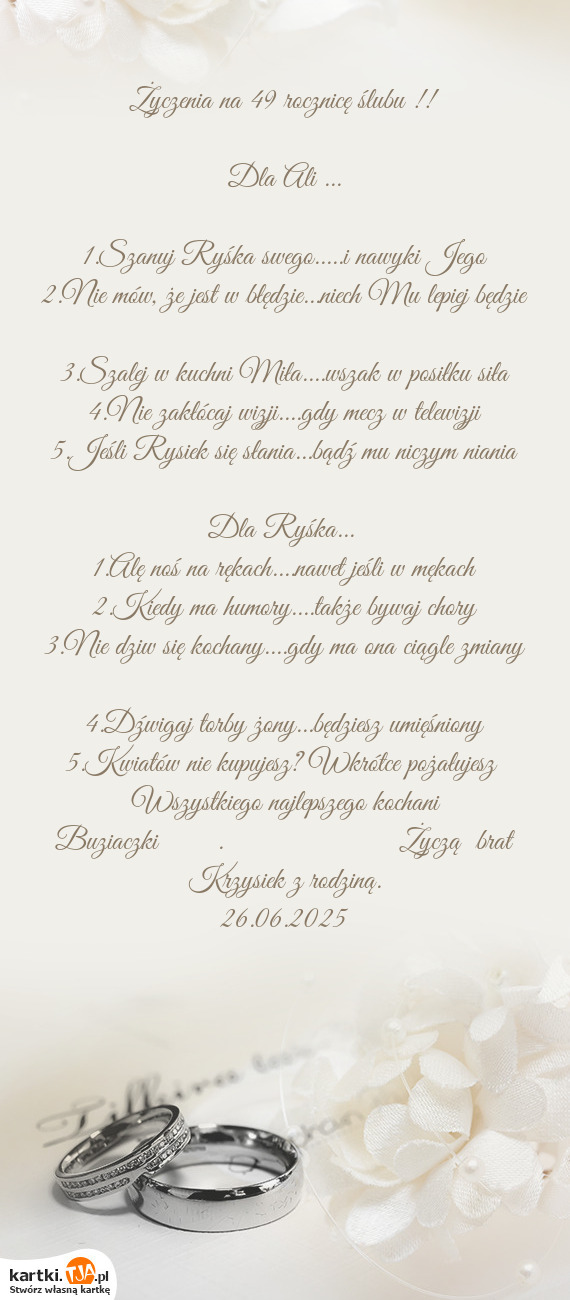 Życzenia na 49 rocznicę ślubu !!
Dla Ali ...
1.Szanuj Ryśka swego.....i nawyki Jego
2.Nie mów, że jest w błędzie...niech Mu lepiej będzie
3.Szalej w kuchni Miła....wszak w posiłku siła
4.Nie zakłócaj wizji....gdy mecz w telewizji
5.Jeśli Rysiek się słania...bądź mu niczym niania
Dla Ryśka...
1.Alę noś na rękach....nawet jeśli w mękach
2.Kiedy ma humory....także bywaj chory
3.Nie dziw się kochany....gdy ma ona ciągle zmiany
4.Dźwigaj torby żony...będziesz umięśniony
5.Kwiatów nie kupujesz? Wkrótce pożałujesz
Wszystkiego najlepszego kochani
Buziaczki . Życzą brat
Krzysiek z rodziną.
26.06.2025
kartki.TJA.pl
Stwórz własną kartkę